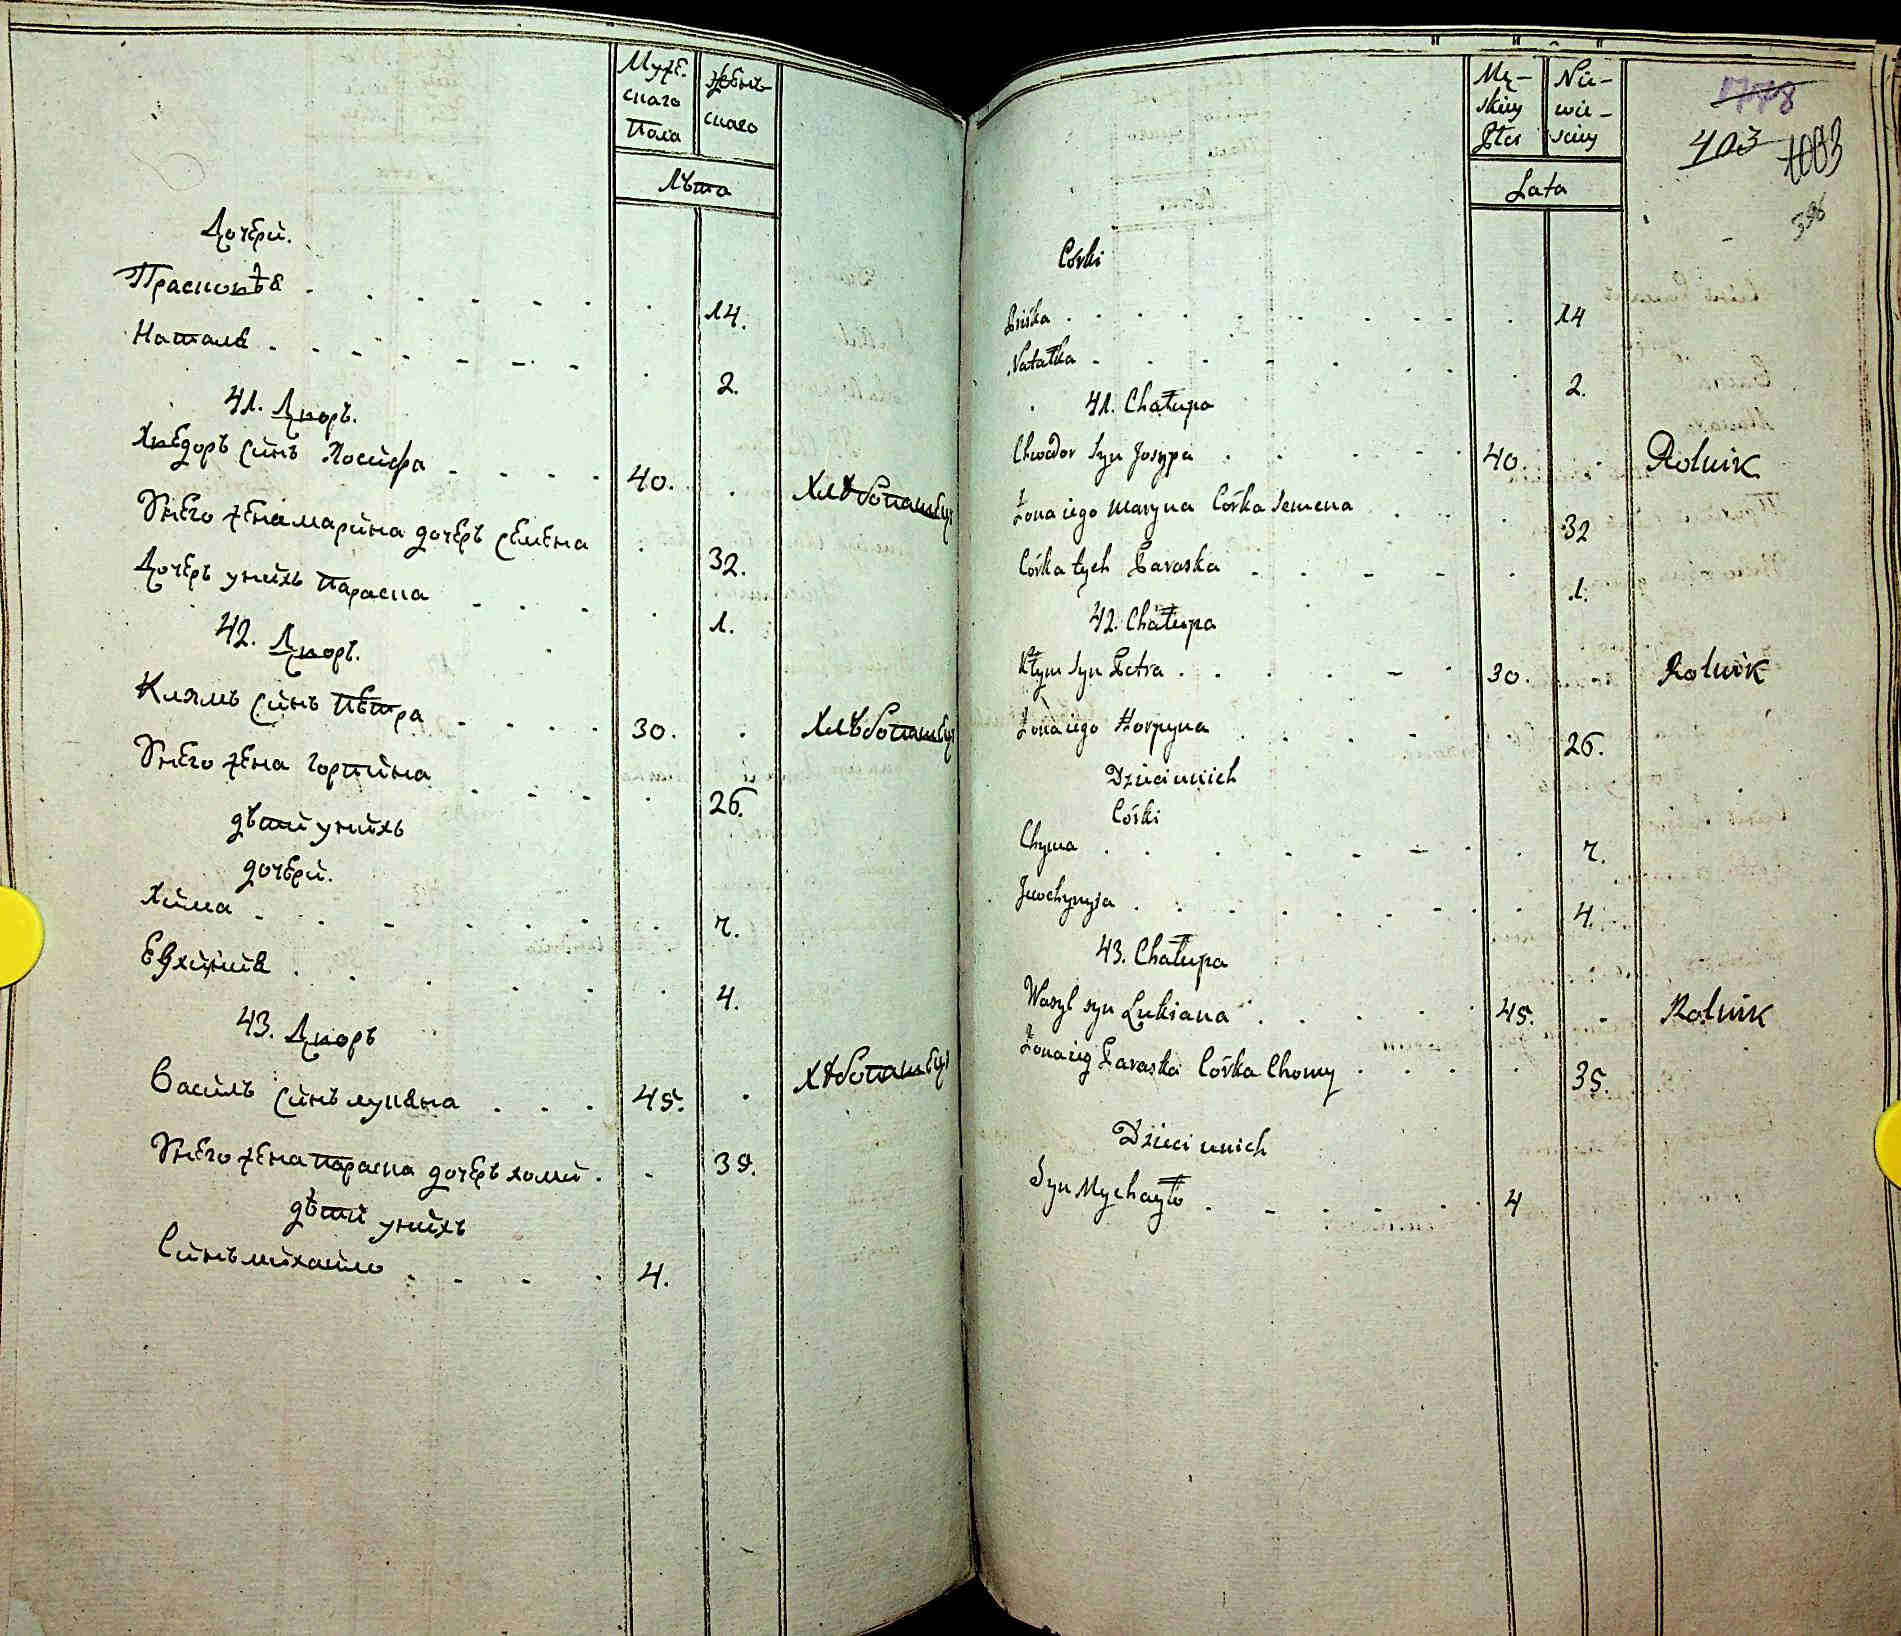 Мужескаго Пола
Женскаго
Лѣта
Дочери.
Прасковѣя 14.
Наталя 2.
41. Дворъ.
Хведоръ Синъ Иосифа 40. Хлѣбопашецъ
Унего жена марина дочеръ Семена 32.
Дочеръ унихъ параска 1.
42. Дворъ.
Климъ Синъ Пѣтра 30. Хлѣбопашецъ
Унего жена горпина 26.
дѣти унихъ
дочери.
Хима 7.
Евхиния 4.
43. Дворъ
Василъ Синъ лукяна 45. Хлѣбопашецъ
Унего жена параска дочеръ хоми 35.
дѣти унихъ
Синъ михаило 4.
Mę-
skiey
Płci
Nie-
wie-
sciey
Lata
1778
403 1003
396
Córki
Priśka 14
Natałka 2.
41. Chałupa
Chwedor Syn Josypa 40. Rolnik
Żona iego Maryna Córka Semena 32
Córka tych Paraska 1.
42. Chałupa
Kłym Syn Petra 30. Rolnik
Żona iego Horpyna 26.
Dzieci unich
Córki
Chyma 7.
Jewchynyia 4.
43. Chałupa
Wasyl syn Lukiana 45. Rolnik
Żona ieg Paraska Córka Chomy 35.
Dzieci unich
Syn Mychayło 4